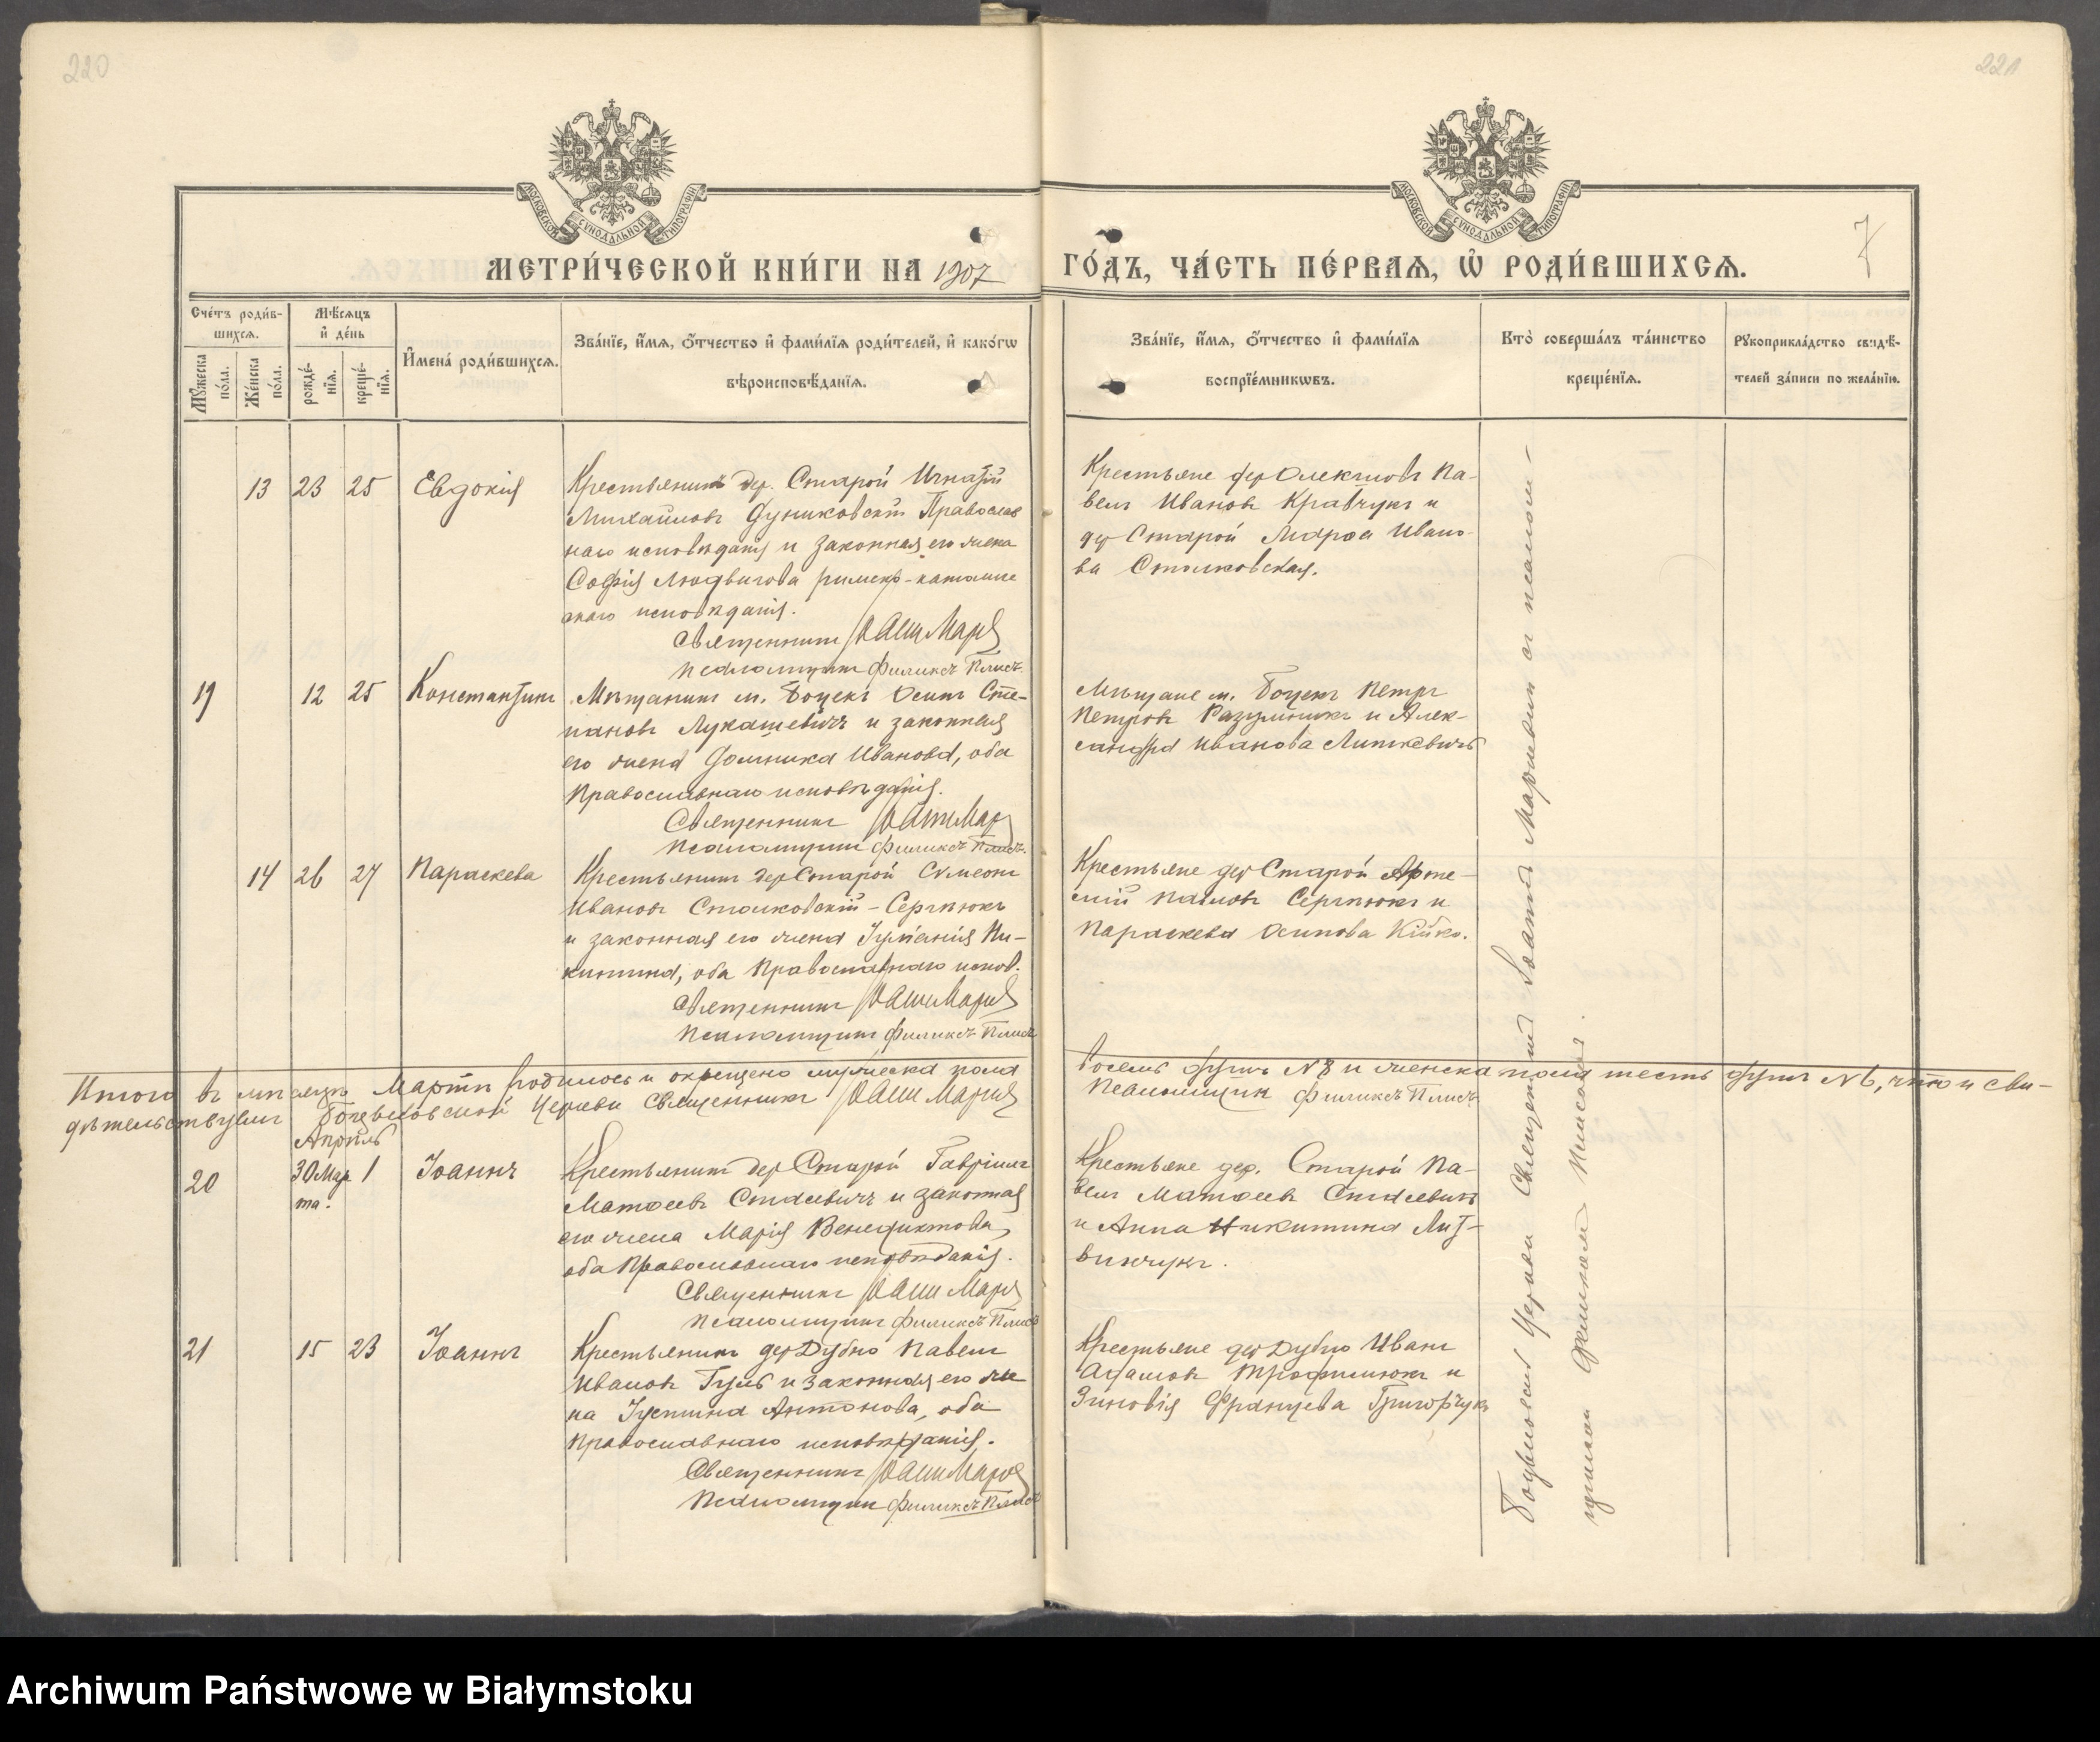 220
221
МОСКОВСКОЙ СѴНОДАЛЬНОЙ ТИПОГРАФІИ
МОСКОВСКОЙ СѴНОДАЛЬНОЙ ТИПОГРАФІИ
МЕТРИ́ЧЕСКОЙ КНИ́ГИ НА 1907
ГО́ДЪ, ЧА́СТЬ ПЕ́РВАѦ, Ѡ҆ РОДИ́ВШИХСѦ.
7
Сче́тъ роди́в-
шихсѧ.
Мꙋ́жеска
по́ла.
Же́нска
по́ла.
Мѣ́сѧцъ
и҆ де́нь
рожде́-
нїѧ.
креще́-
нїѧ.
И҆мена̀ роди́вшихсѧ.
Зва́нїе, и҆́мѧ, ѻ҆́тчество и҆ фами́лїѧ роди́телей, и҆ како́гѡ
вѣроисповѣ́данїѧ.
Зва́нїе, и҆́мѧ, ѻ҆́тчество и҆ фами́лїѧ
воспрїе́мникѡвъ.
Кто̀ соверша́лъ та́инство
креще́нїѧ.
Рꙋкоприкла́дство свидѣ́-
телей за́писи по жела́нїю.
13 23 25 Евдокія
Крестьянинъ дер. Старой Игнатій
Михайловъ Дуниковскій Православ
наго исповѣданія и законная его жена
Софія Людвигова римско-католиче
скаго исповѣданія.
Священникъ
Псаломщикъ Филиксъ Плисъ
Крестьяне дер Олекшовъ Па-
велъ Ивановъ Кравчукъ и
дер Старой Марѳа Ивано-
ва Столковская.
19 12 25 Константинъ
Мѣщанинъ м. Боцекъ Осипъ Сте-
пановъ Лукашевичъ и законная
его жена Домника Иванова, оба
Православнаго исповѣданія.
Священникъ
Псаломщикъ Филиксъ Плисъ.
Мѣщане м. Боцекъ Петръ
Петровъ Разумникъ и Алек-
сандра Иванова
14 26 27 Параскева
Крестьянинъ дер Старой Сѵмеонъ
Ивановъ Столковскій - Сергпюкъ
и законная его жена Іуліанія Ни-
китина, оба Православнаго испов.
Священникъ
Псаломщикъ Филиксъ Плисъ
Крестьяне дер Старой Арте-
мій Павловъ Сергпюкъ и
Параскева Осипова Кійко.
Итого въ мѣсяцѣ Мартѣ родилось и окрещено мужеска пола
восемь душъ №8 и женска пола шесть душъ №6, что и сви-
дѣтельствуемъ Боцьковской Церкви Священникъ
Псаломщикъ Филиксъ Плисъ
Апрѣль
20 30 Мар 1 Іоаннъ
та.
Крестьянинъ дер Старой Гавріилъ
Матѳеевъ Стасевичъ и законная
его жена Марія Венедиктова,
оба Православнаго исповѣданія.
Священникъ
Псаломщикъ Филиксъ Плисъ
Крестьяне дер. Старой Па-
велъ Матѳеевъ Стасевичъ
и Анна Никитина Лит-
винчукъ.
21 15 23 Іоаннъ
Крестьянинъ дер Дубно Павелъ
Ивановъ Гуль и законная его же
на Іустина Антонова, оба
Православнаго исповѣданія.
Священникъ
Псаломщикъ Филиксъ Плисъ
Крестьяне дер Дубно Иванъ
Адамовъ Трофимюкъ и
Зиновія Францева Григорчукъ
Боцьковской Церкви Священникъ Іоаннъ съ псалом-
щикомъ Филиксомъ Плисомъ.
Archiwum Państwowe w Białymstoku